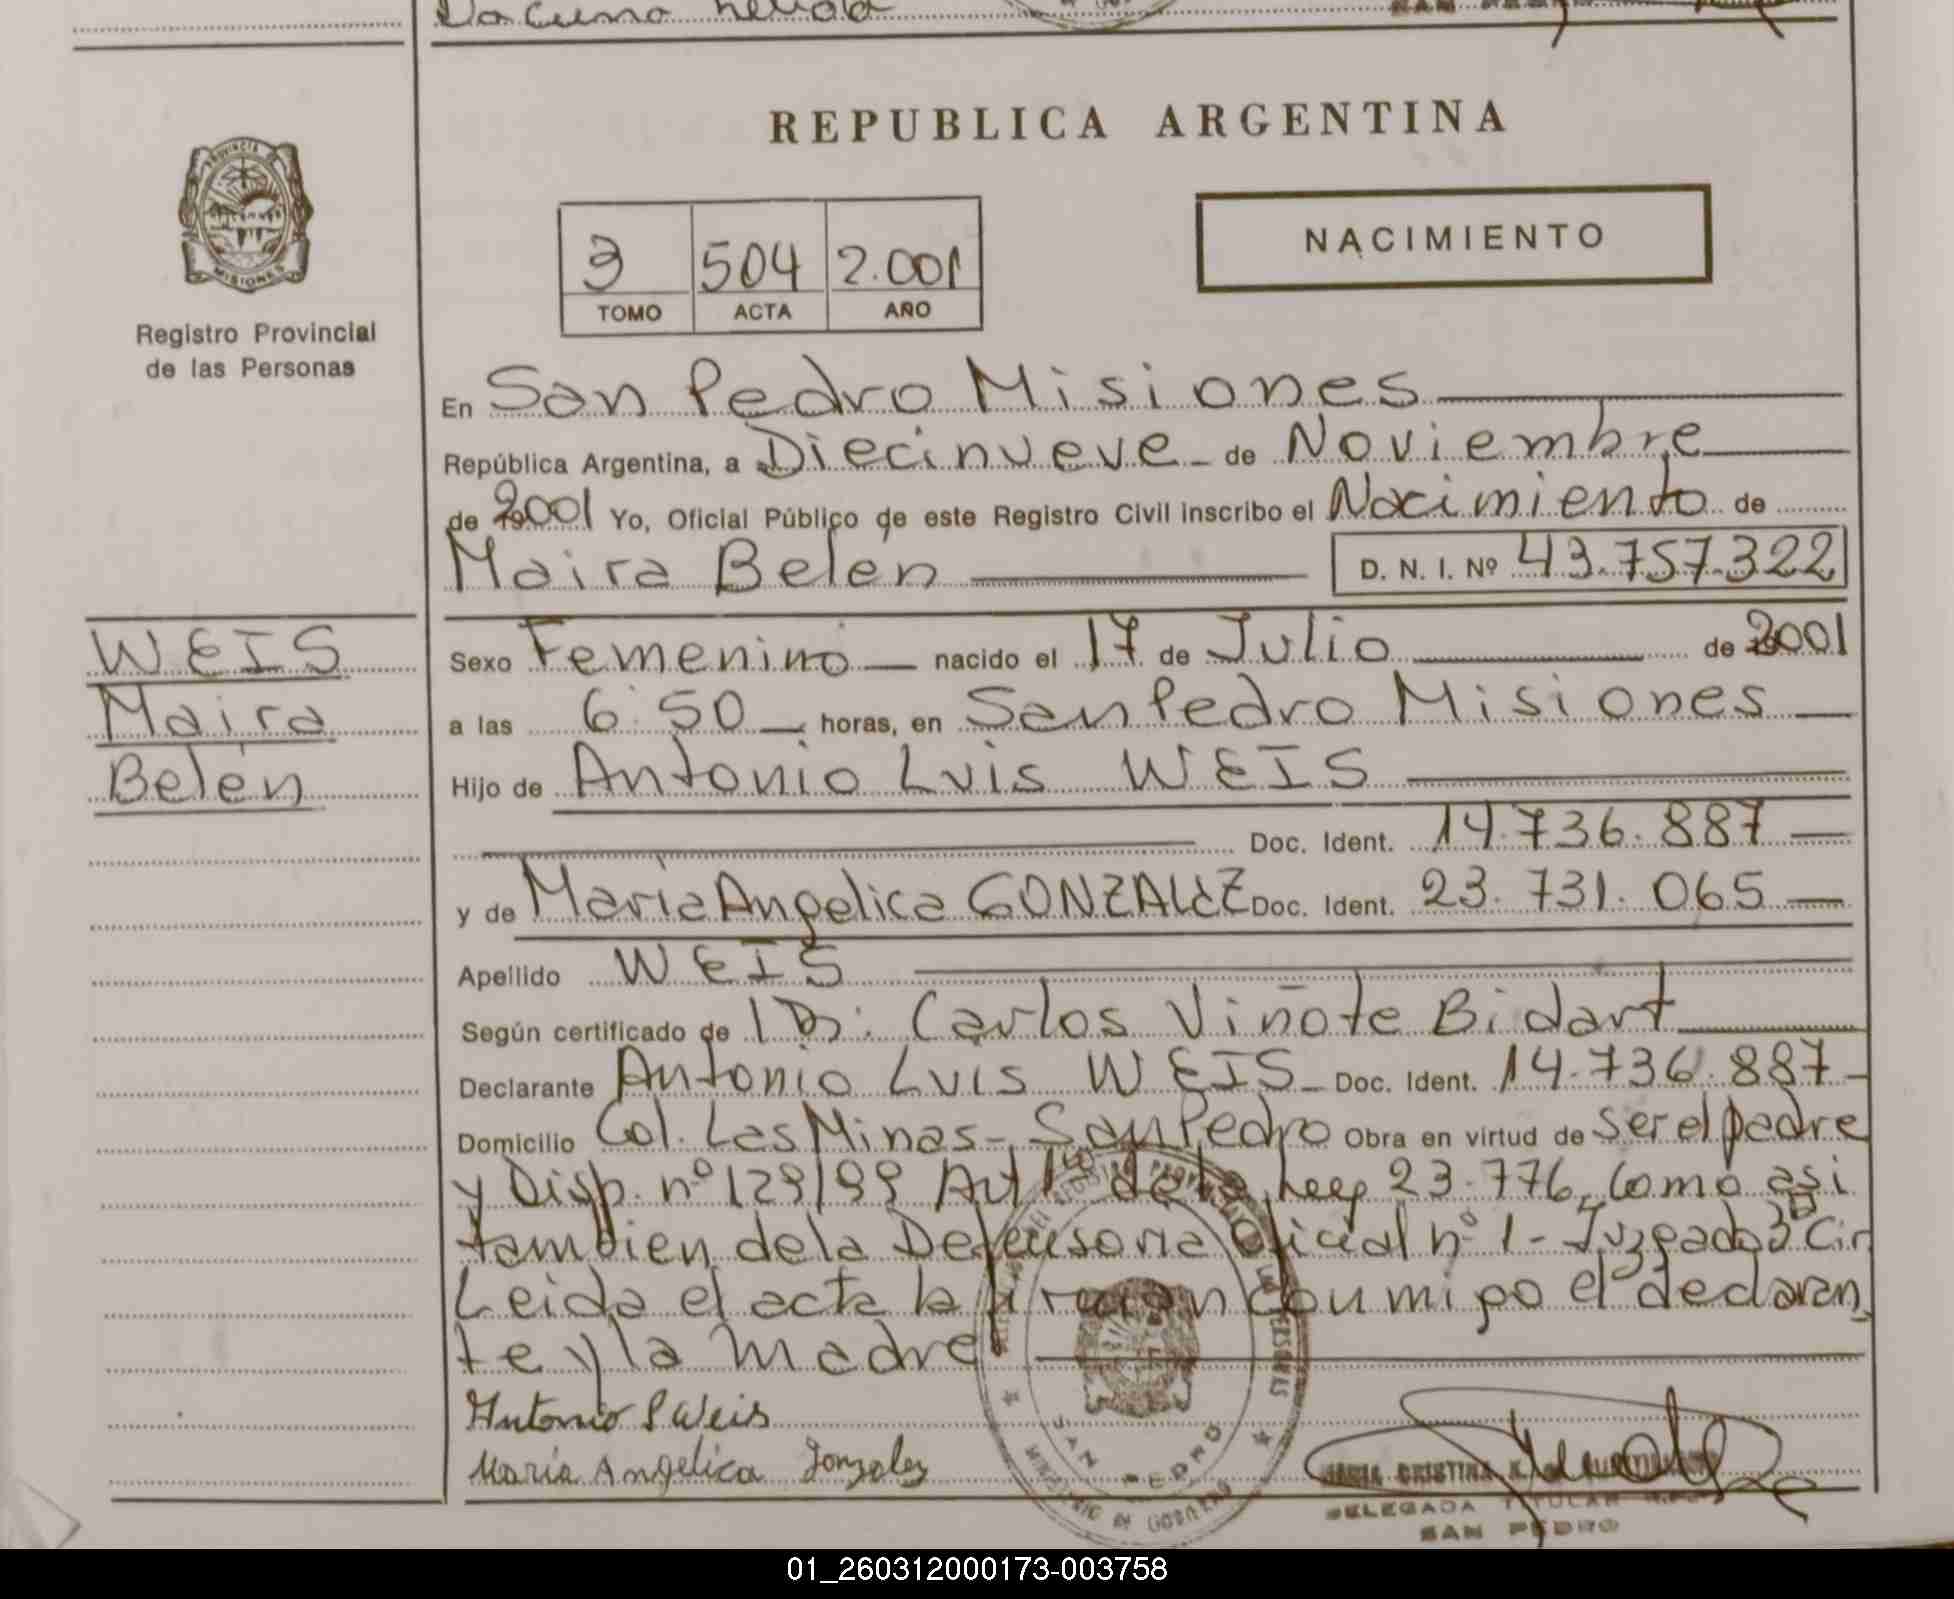 REPUBLICA ARGENTINA
PROVINCIA DE
MISIONES
Registro Provincial
de las Personas
3 504 2.001
TOMO ACTA AÑO
NACIMIENTO
En San Pedro Misiones
República Argentina, a Diecinueve de Noviembre
de 2001 Yo, Oficial Público de este Registro Civil inscribo el Nacimiento de
Maira Belén D. N. I. Nº 43.757.322
WEIS
Maira
Belén
Sexo Femenino nacido el 17 de Julio de 2001
a las 6:50 horas, en San Pedro Misiones
Hijo de Antonio Luis WEIS
Doc. Ident. 14.736.887
y de María Angelica GONZALEZ Doc. Ident. 23.731.065
Apellido WEIS
Según certificado de Dr. Carlos Viñote Bidart
Declarante Antonio Luis WEIS Doc. Ident. 14.736.887
Domicilio Col. Las Minas - San Pedro Obra en virtud de ser el padre
y Disp. nº 129/99 Art 1º de la Ley 23.776, como asi
tambien de la Defensoria Oficial nº 1 - Juzgado 3º Cir
Leida el acta la firman conmigo el declaran
te y la madre
Antonio L Weis
María Angelica Gonzalez
SAN PEDRO
MINISTERIO DE GOBIERNO
MARIA CRISTINA K. de
DELEGADA TITULAR
SAN PEDRO
01_260312000173-003758